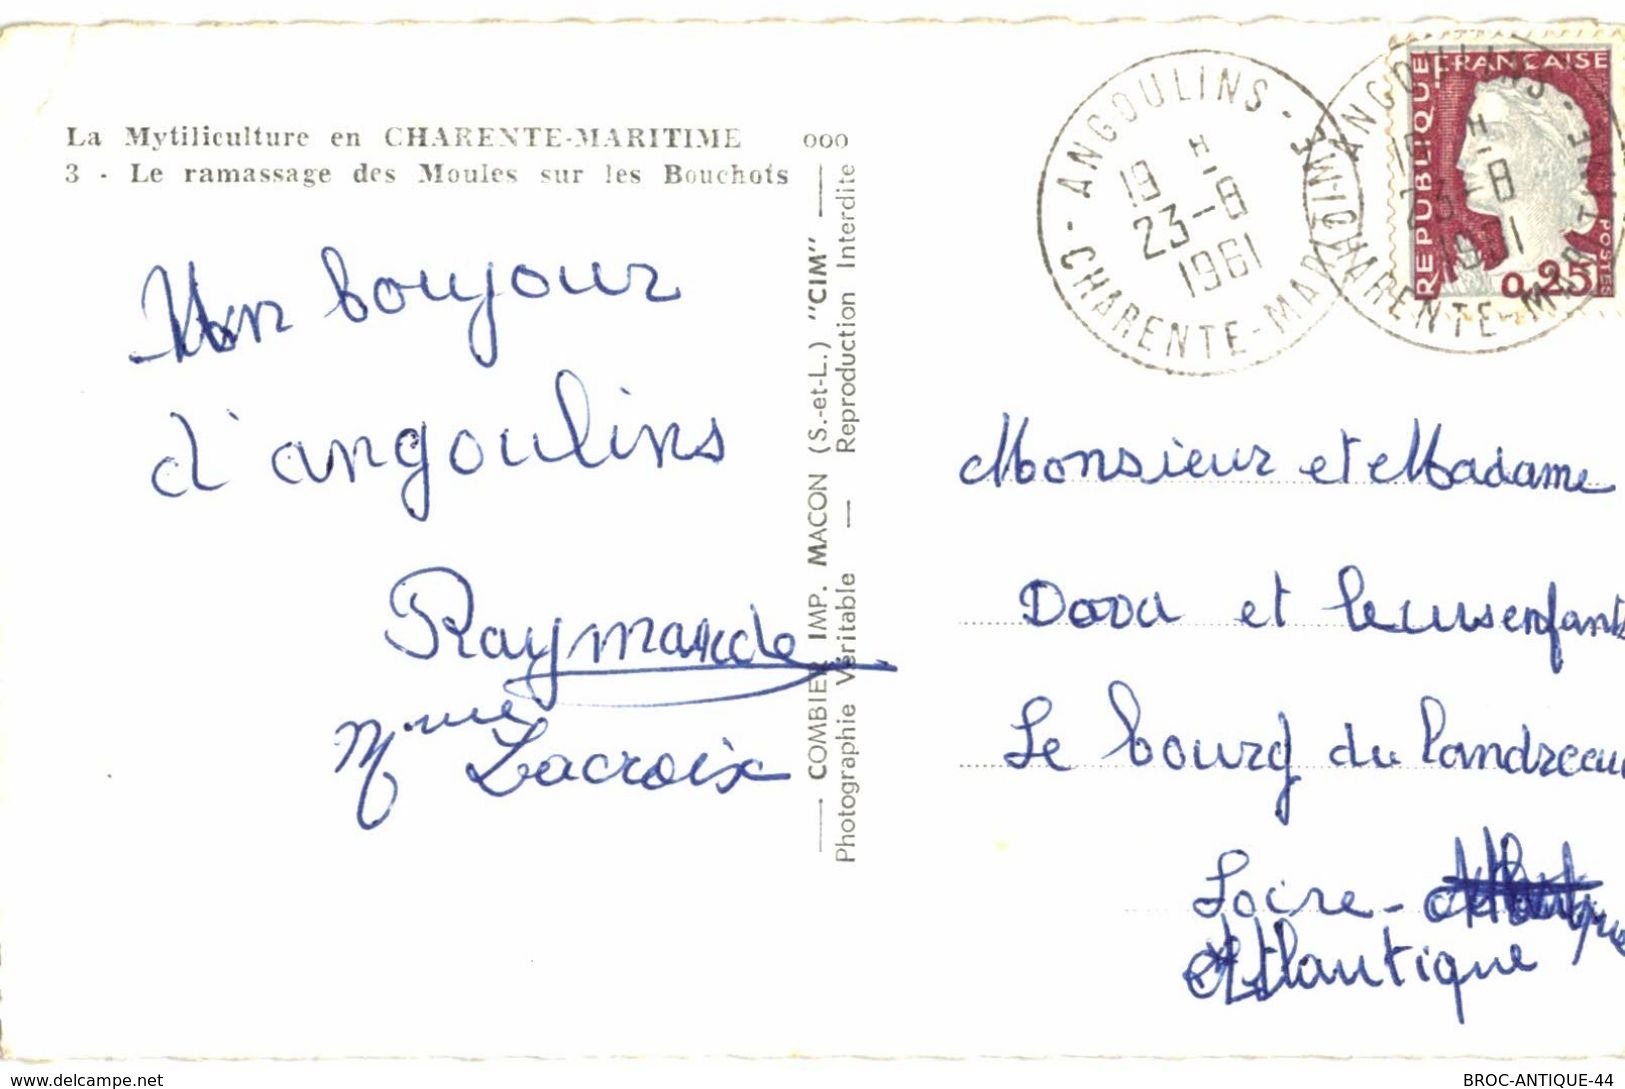 La Mytiliculture en CHARENTE-MARITIME
3 - Le ramassage des Moules sur les Bouchots
ooo
Mon bonjour
d'angoulins
Raymande
Mme Lacroix
COMBIER IMP. MACON (S.-et-L.) "CIM"
Photographie Véritable — Reproduction Interdite
- ANGOULINS -
CHARENTE-MARITIME
19 H
23-8
1961
- ANGOULINS -
CHARENTE-MARITIME
19 H
23-8
1961
REPUBLIQUE FRANÇAISE
POSTES
0,25
Monsieur et Madame
et leurs enfants
Le bourg du landreau
Loire-
Atlantique
www.delcampe.net
BROC-ANTIQUE-44